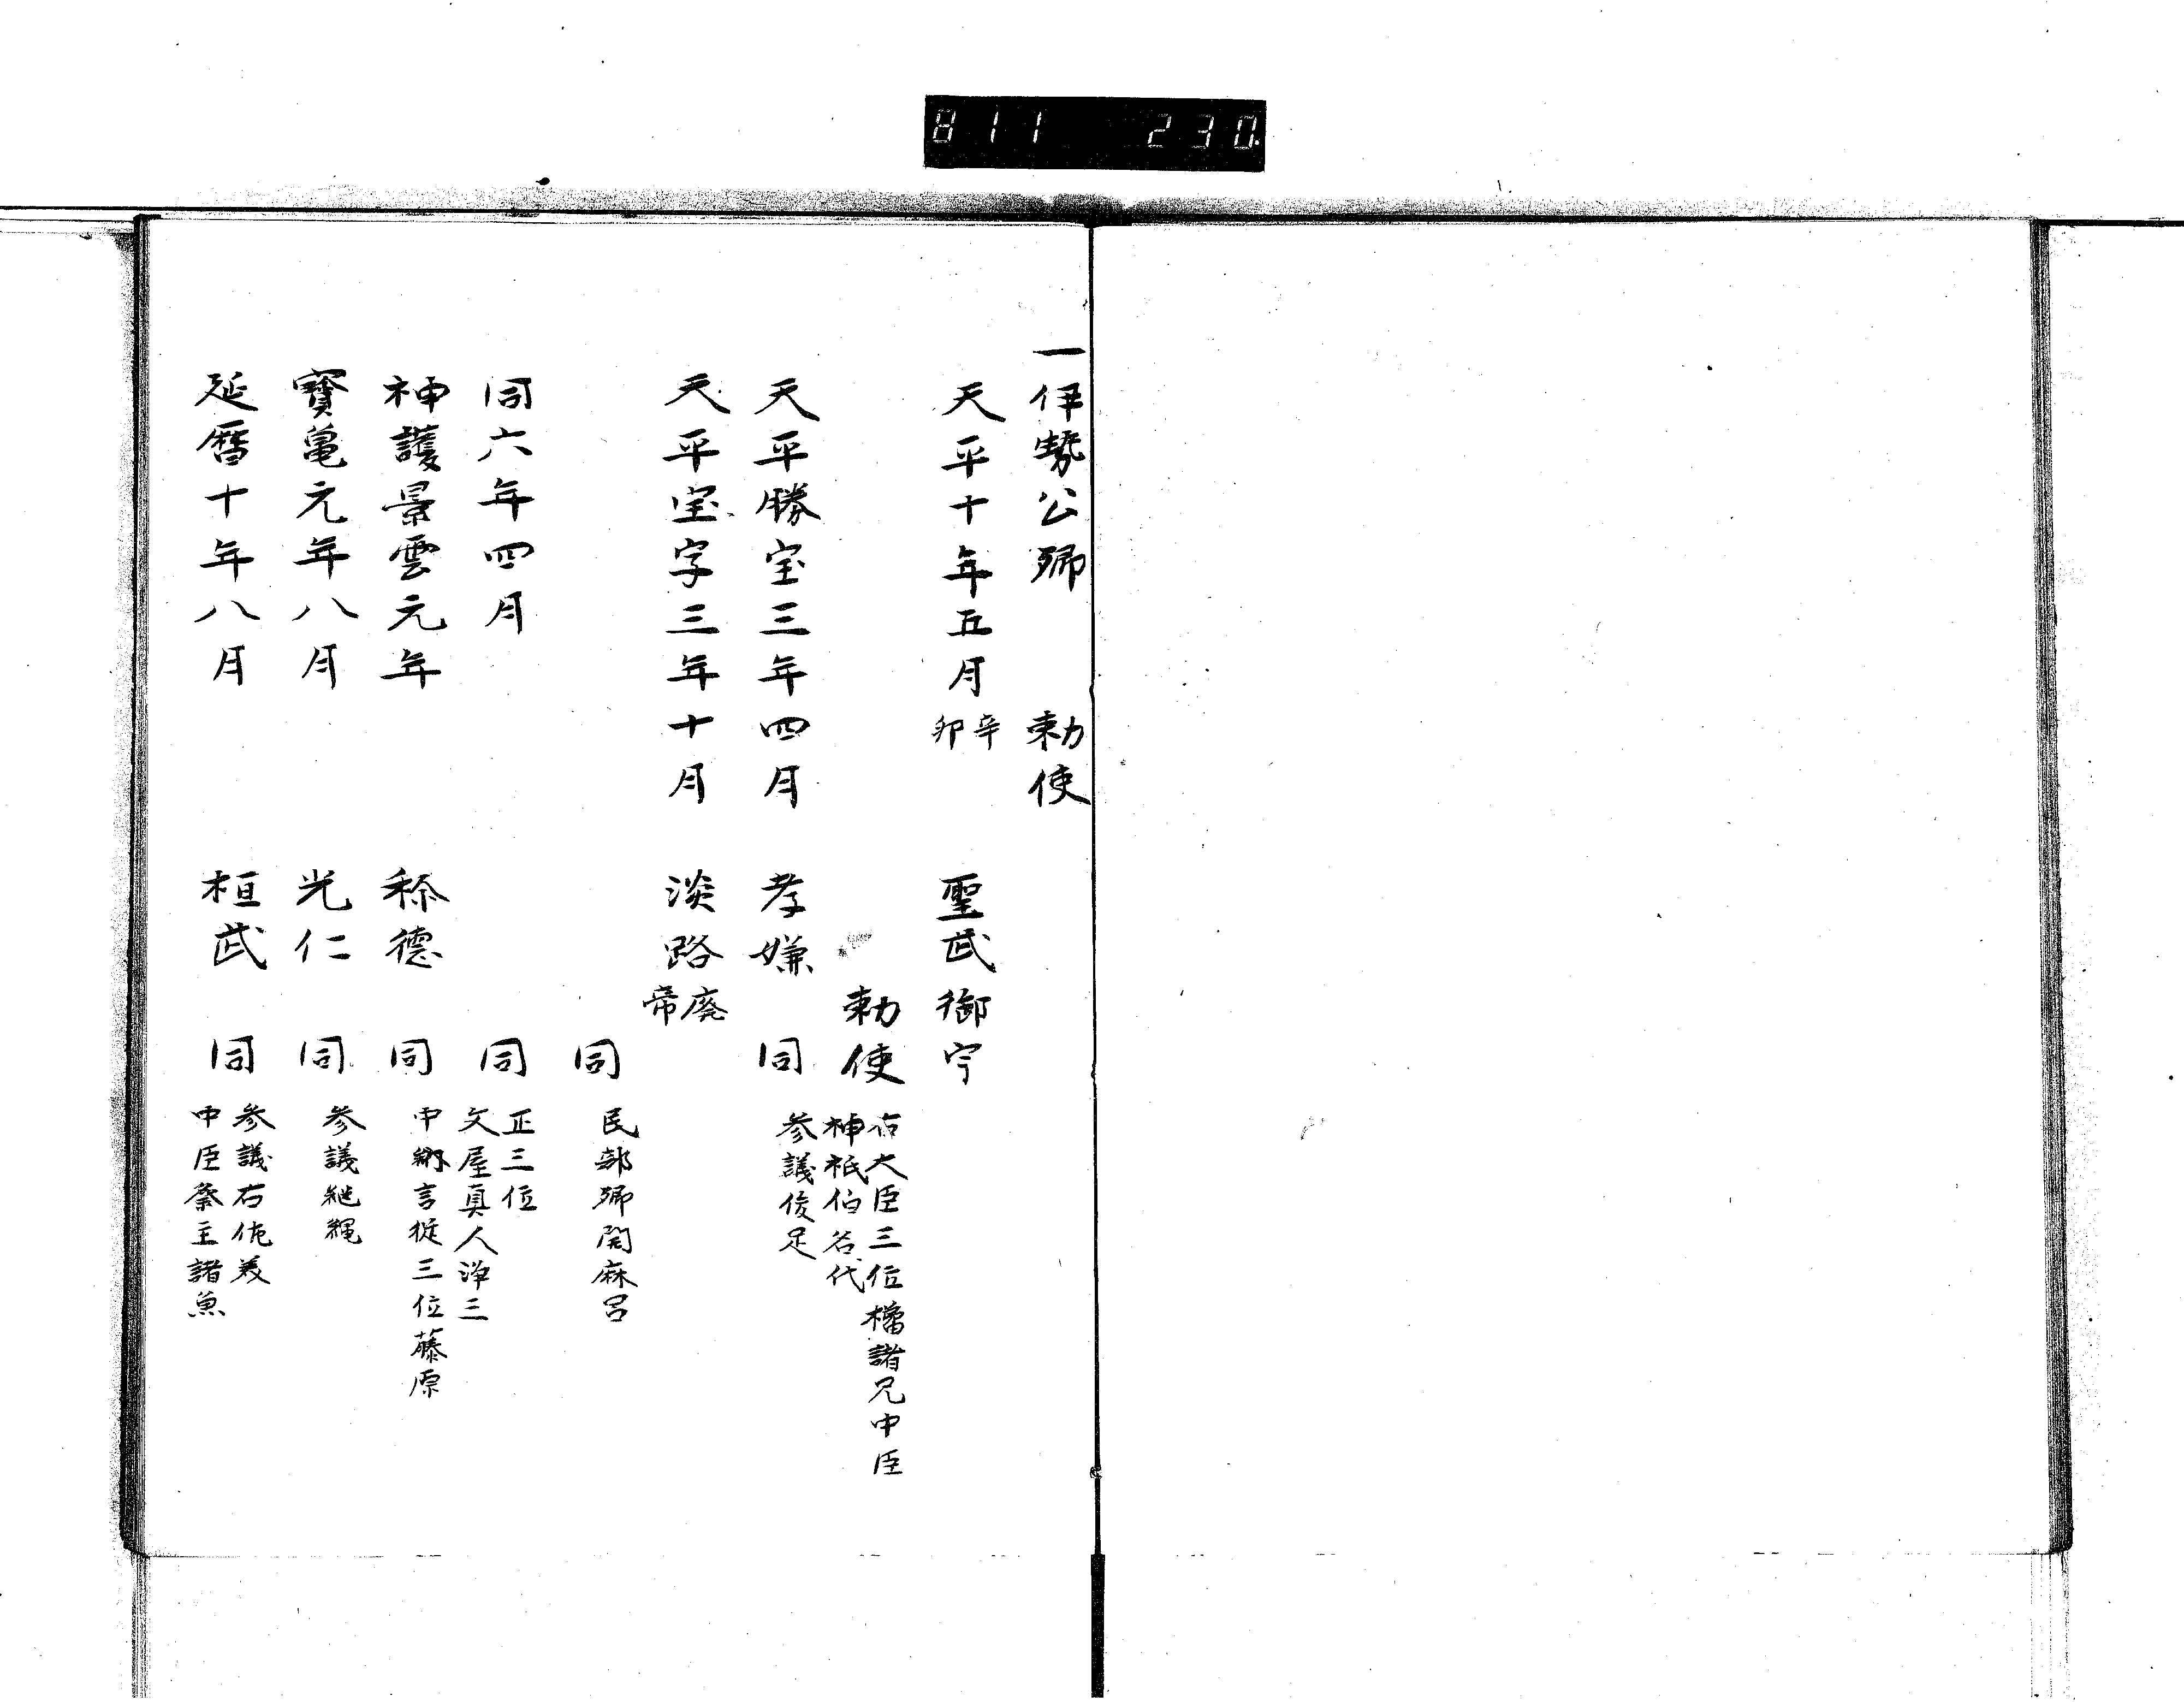 811 230
一伊勢公卿　勅使
天平十年五月辛卯　聖武御宇
勅使　右大臣三位橘諸兄中臣
神祇伯名代
天平勝宝三年四月　孝嫌　同　参議俊足
天平宝字三年十月　淡路廃帝
同　民部卿関麻呂
同六年四月　同　正三位
文屋真人浄三
神護景雲元年　称徳　同　中納言従三位藤原
寶亀元年八月　光仁　同　参議継縄
延暦十年八月　桓武　同　参議右佐美
中臣祭主諸魚